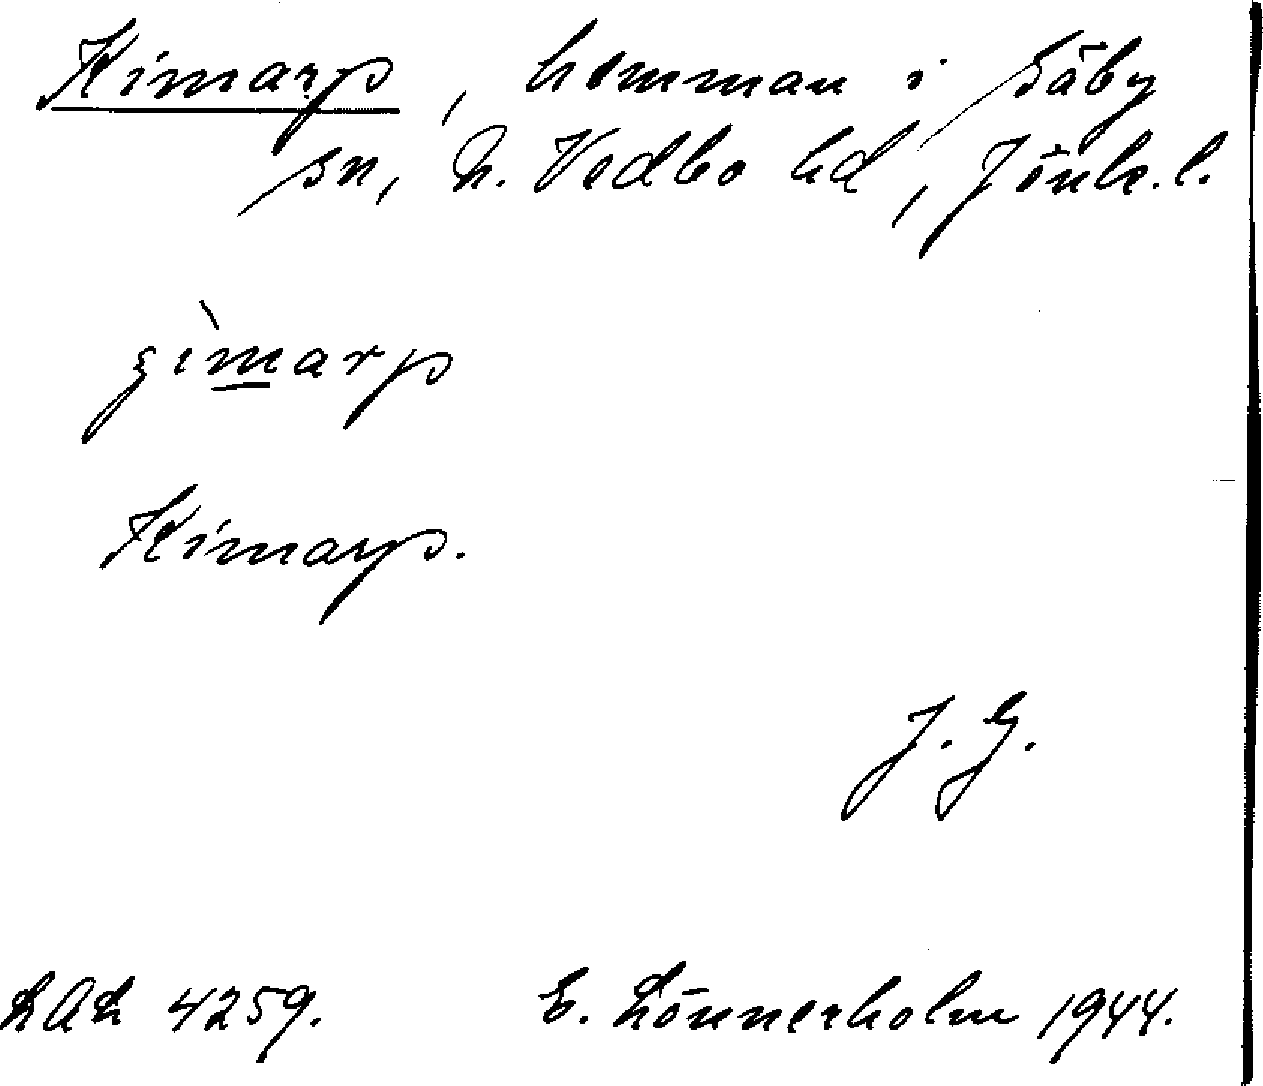 Kimarp, hemman i Säby
sn, N. Vedbo hd, Jönk. l.
ʒìmarp
Kimarp.
J. G.
LAL 4259. E. Lönnerholm 1944.